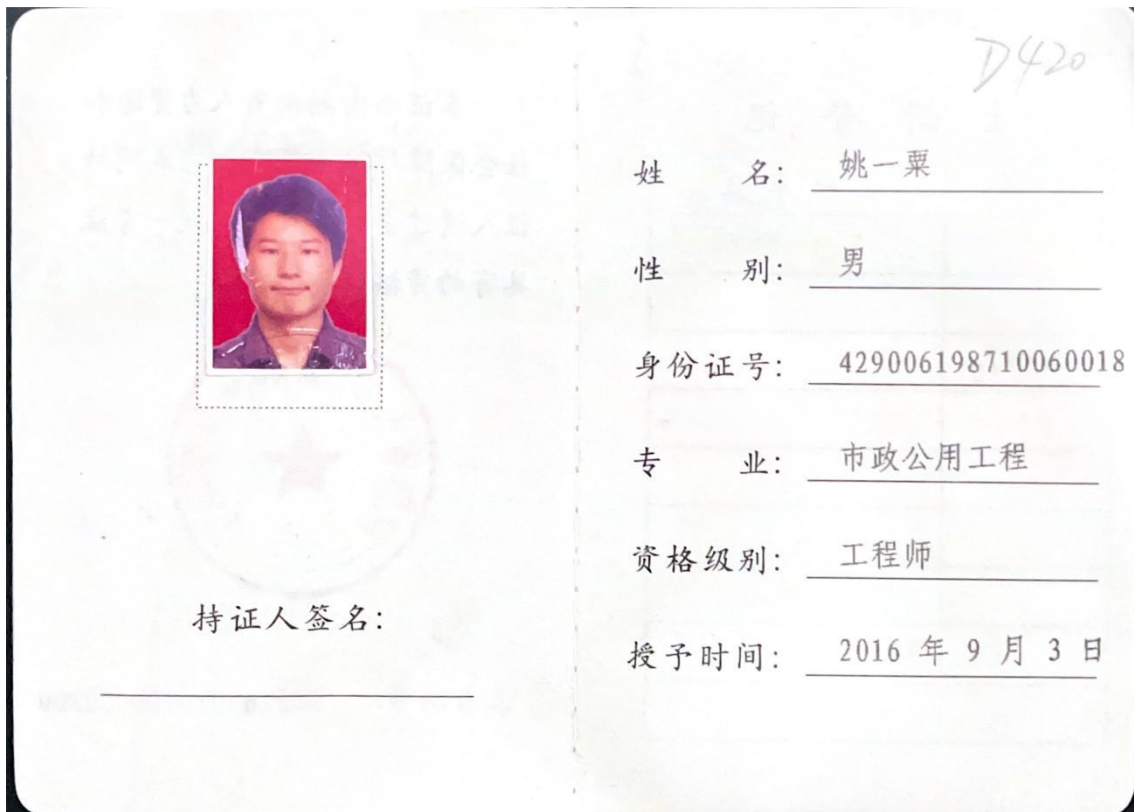 D420
姓名：姚一粟
性别：男
身份证号：429006198710060018
专业：市政公用工程
资格级别：工程师
授予时间：2016 年 9 月 3 日
持证人签名：